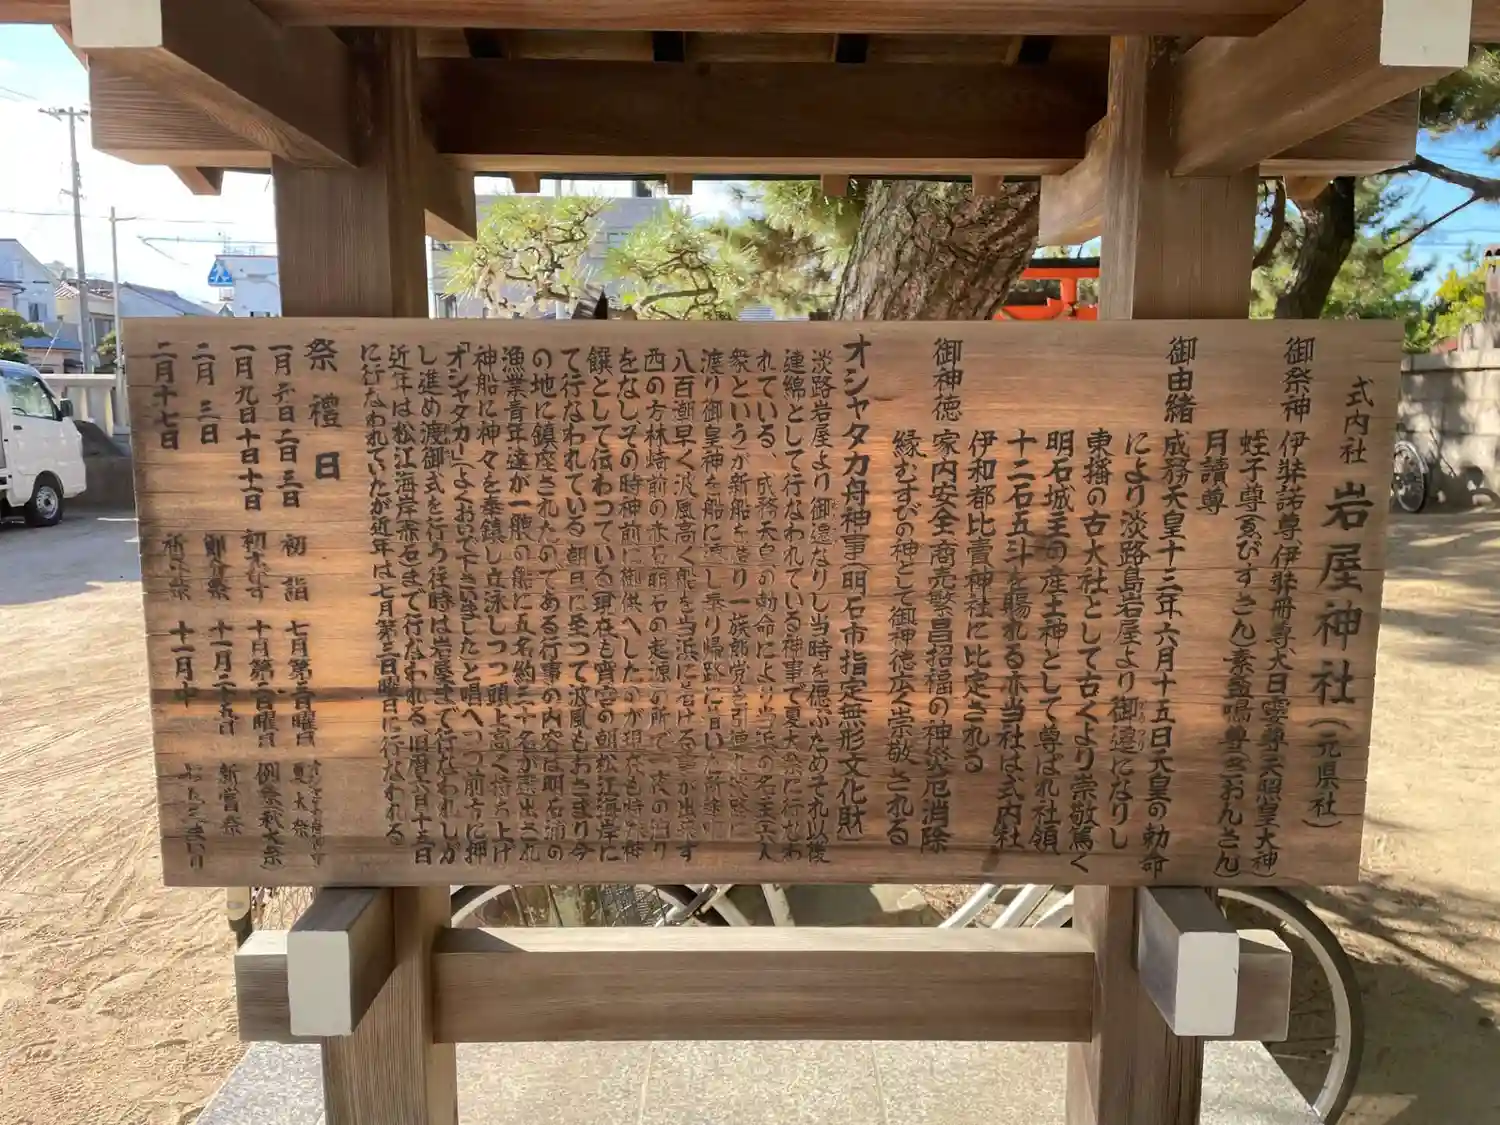 式内社 岩屋神社(元県社)
御祭神 伊弉諾尊 伊弉冊尊、大日孁尊(天照皇大神)
蛭子尊(ゑびすさん)素盞嗚尊(ぎおんさん)
月讀尊
御由緒 成務天皇十三年六月十五日天皇の勅命
により淡路島岩屋より御遷になりし
東播の古大社として古くより崇敬篤く
明石城主の産土神として尊ばれ社領
十二石五斗を賜れる亦当社は式内社
伊和都比賣神社に比定される
御神徳 家内安全商売繁昌招福の神災厄消除
縁むすびの神として御神徳広く崇敬される
オシャタカ舟神事(明石市指定無形文化財)
淡路岩屋より御遷なりし当時を偲ぶためそれ以後
連綿として行なわれている神事で夏大祭に行なわ
れている、成務天皇の勅命により当浜の名主 人
衆というが新船を造り一族郎党を引連れ淡路に
渡り御皇神を船に遷し乗り帰路に着いた所
八百潮早く波風高く船を当浜に着ける事が出来ず
西の方林崎前の赤石(明石の起源)の所で一夜の泊り
をなしその時神前に御供へしたのが現在も特殊神
饌として伝わっている現在も宵宮の朝松江海岸に
て行なわれている朝日に至って波風もおさまり今
の地に鎮座されたのである行事の内容は明石浦の
漁業青年達が一艘の船に五名約三十名が選出され
神船に神々を奉鎮し立泳しつつ頭上高く持ち上げ
「オシャタカー」(よくおいで下さいました)と唱へつつ前方に押
し進め渡御式を行う往時は岩屋まで行なわれしが
近年は松江海岸赤石まで行なわれる、旧暦六月十五日
に行なわれていたが近年は七月第三日曜日に行なわれる
祭禮日
一月一日二日三日 初詣 七月第三日曜日 夏大祭
一月九日十日十一日 初ゑびす 十月第二日曜日 例祭(秋大祭)
二月三日 節分祭 十一月二十五日 新嘗祭
二月十七日 祈年祭 十二月中